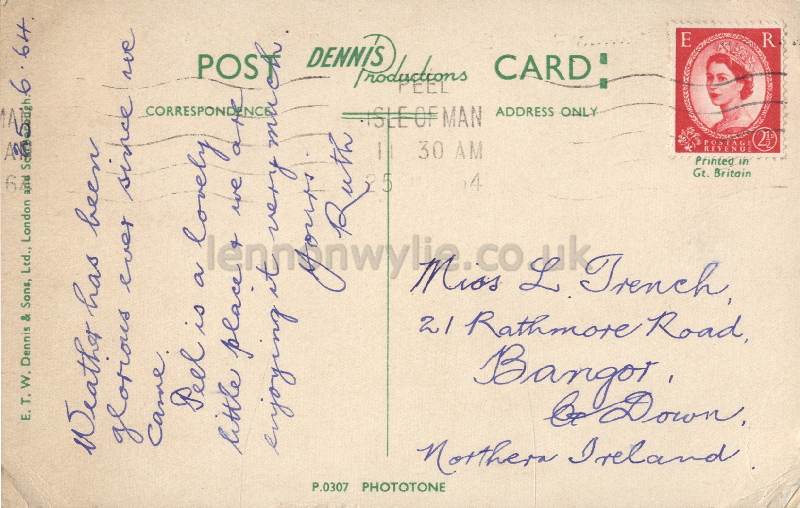 POST DENNIS Productions CARD
CORRESPONDENCE ADDRESS ONLY
E R
POSTAGE
REVENUE
2½D
Printed in
Gt. Britain
PEEL
ISLE OF MAN
11 30 AM
25
25.6.64.
Weather has been
glorious ever since we
came.
Peel is a lovely
little place & we are
enjoying it very much.
Yours.
Ruth
Miss L. French,
21 Rathmore Road,
Bangor,
Co Down,
Northern Ireland.
E. T. W. Dennis & Sons, Ltd., London and Scarborough
P.0307 PHOTOTONE
lennonwylie.co.uk